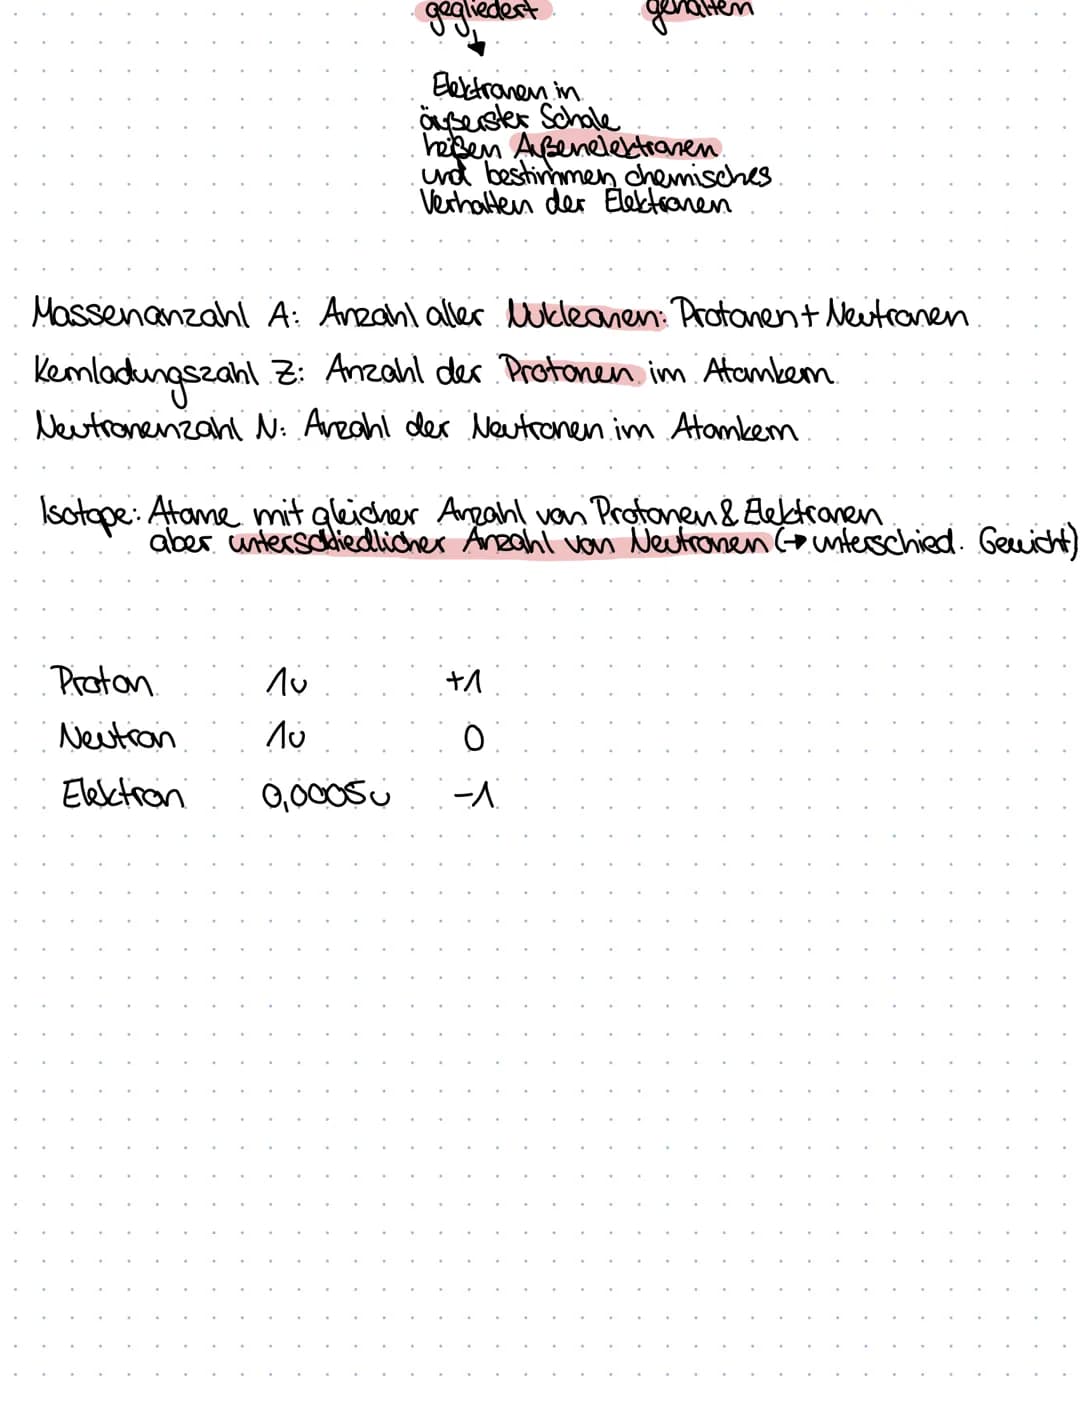 gegliedert gehalten
Elektronen in
äußerster Schale
heißen Außenelektronen
und bestimmen chemisches
Verhalten der Elektronen
Massenanzahl A: Anzahl aller Nukleonen: Protonen + Neutronen
Kernladungszahl Z: Anzahl der Protonen im Atomkern
Neutronenzahl N: Anzahl der Neutronen im Atomkern
Isotope: Atome mit gleicher Anzahl von Protonen & Elektronen
aber unterschiedlicher Anzahl von Neutronen (→ unterschied. Gewicht)
Proton 1u +1
Neutron 1u 0
Elektron 0,0005u -1